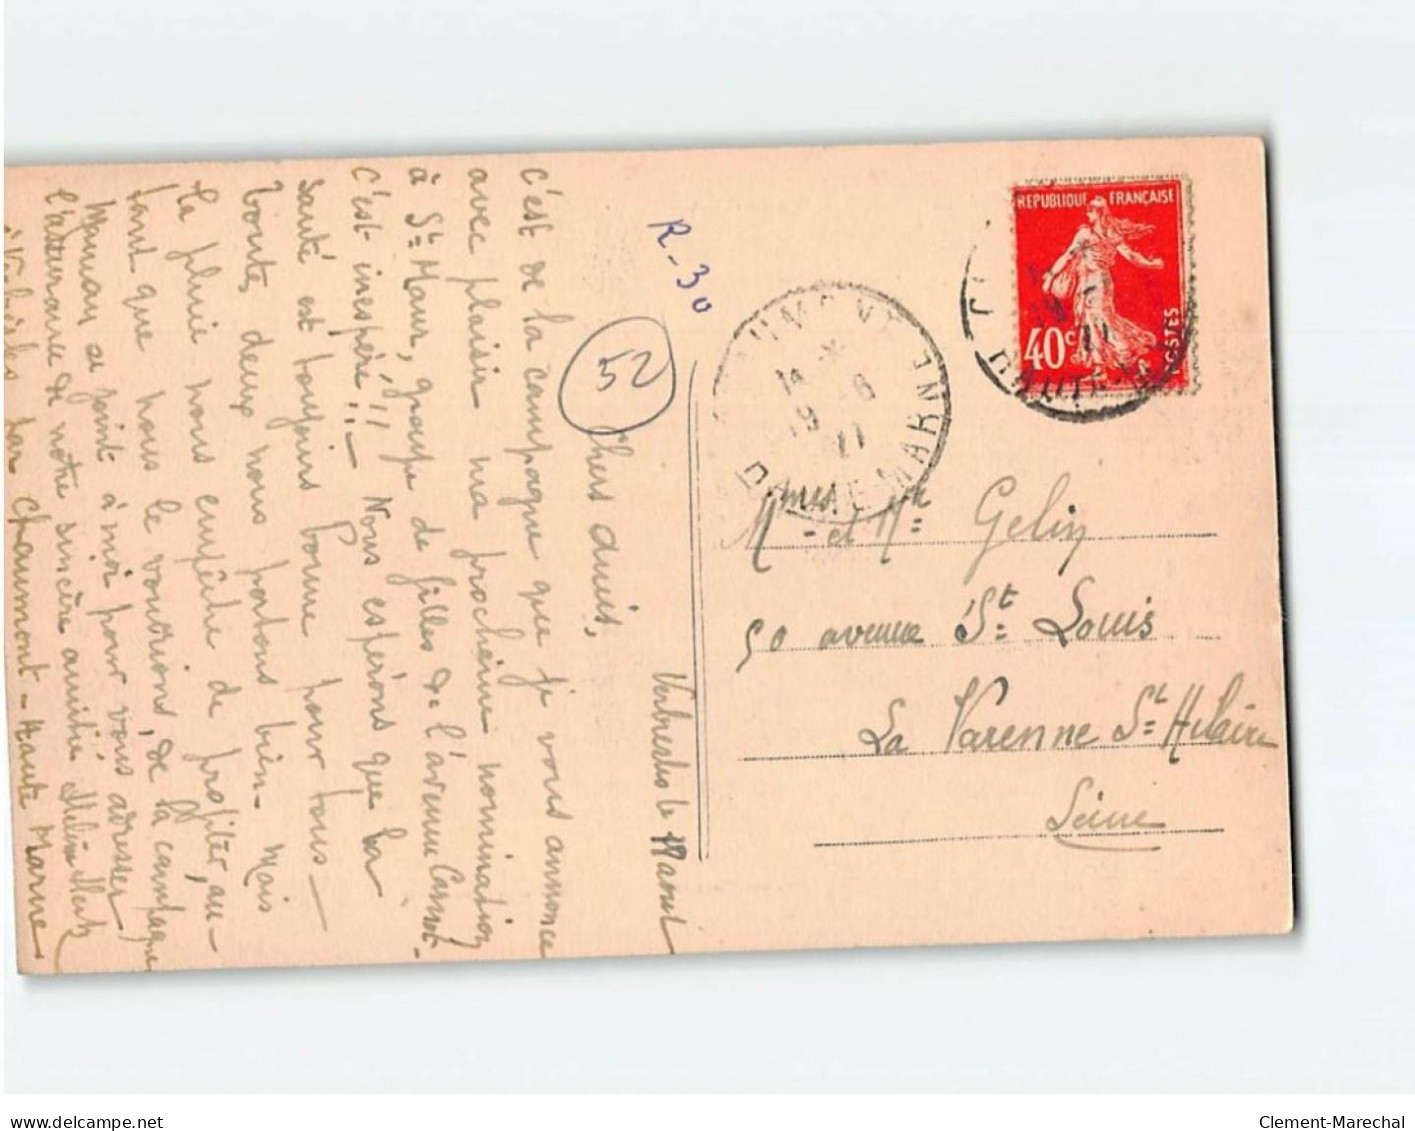 Verbiesles le 18 aout
Chers amis,
c'est de la campagne que je vous annonce
avec plaisir ma prochaine nomination
à St Maur, groupe de filles de l'avenue Carnot -
c'est inespéré!!! Nous espérons que la
santé est toujours bonne pour tous -
toutes deux nous portons bien - Mais
la pluie nous empêche de profiter, au-
tant que nous le voudrions, de la campagne
Maman se joint à moi pour vous adresser
l'assurance de notre sincère amitié Hélène
à Verbiesles par Chaumont - Haute Marne
R-30
52
RÉPUBLIQUE FRANÇAISE
40c
POSTES
HAUTE-MARNE
Mmes et Mr Gelin
50 avenue St Louis
La Varenne St Hilaire
Seine
Clement-Marechal